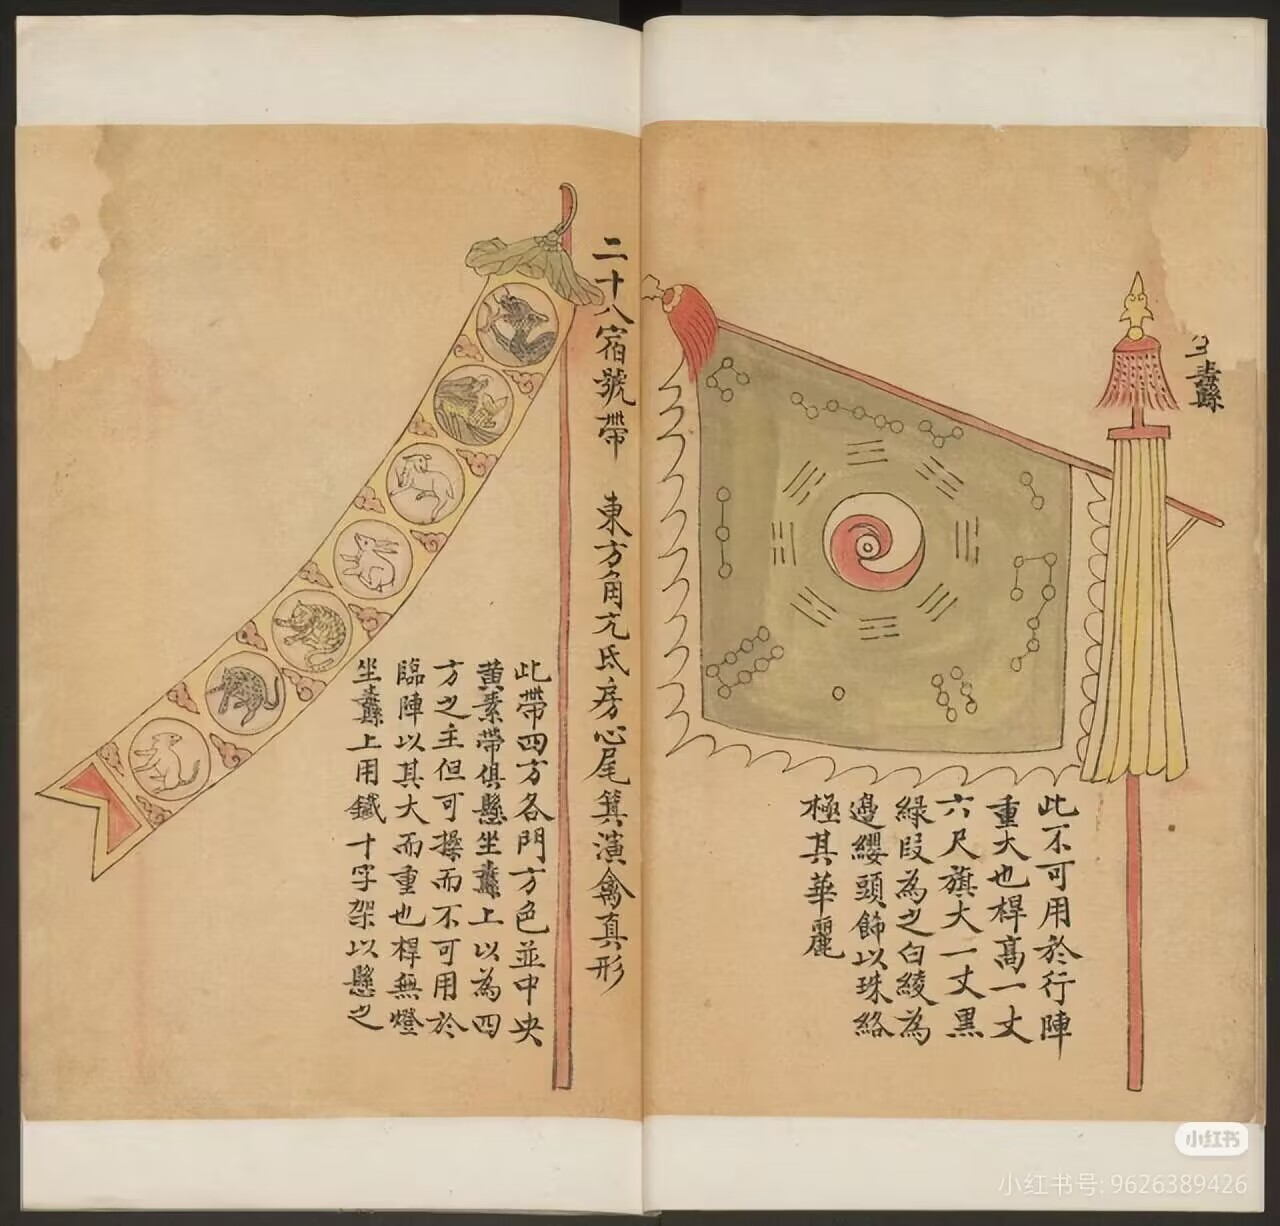 坐纛
此不可用於行陣
重大也桿高一丈
六尺旗大一丈黑
綠段為之白綾為
邊纓頭飾以珠絡
極其華麗
二十八宿號帶 東方角亢氐房心尾箕演禽真形
此帶四方各門方色並中央
黃素帶俱懸坐纛上以為四
方之主但可操而不可用於
臨陣以其大而重也桿無燈
坐纛上用鐵十字架以懸之
小红书
小红书号: 9626389426